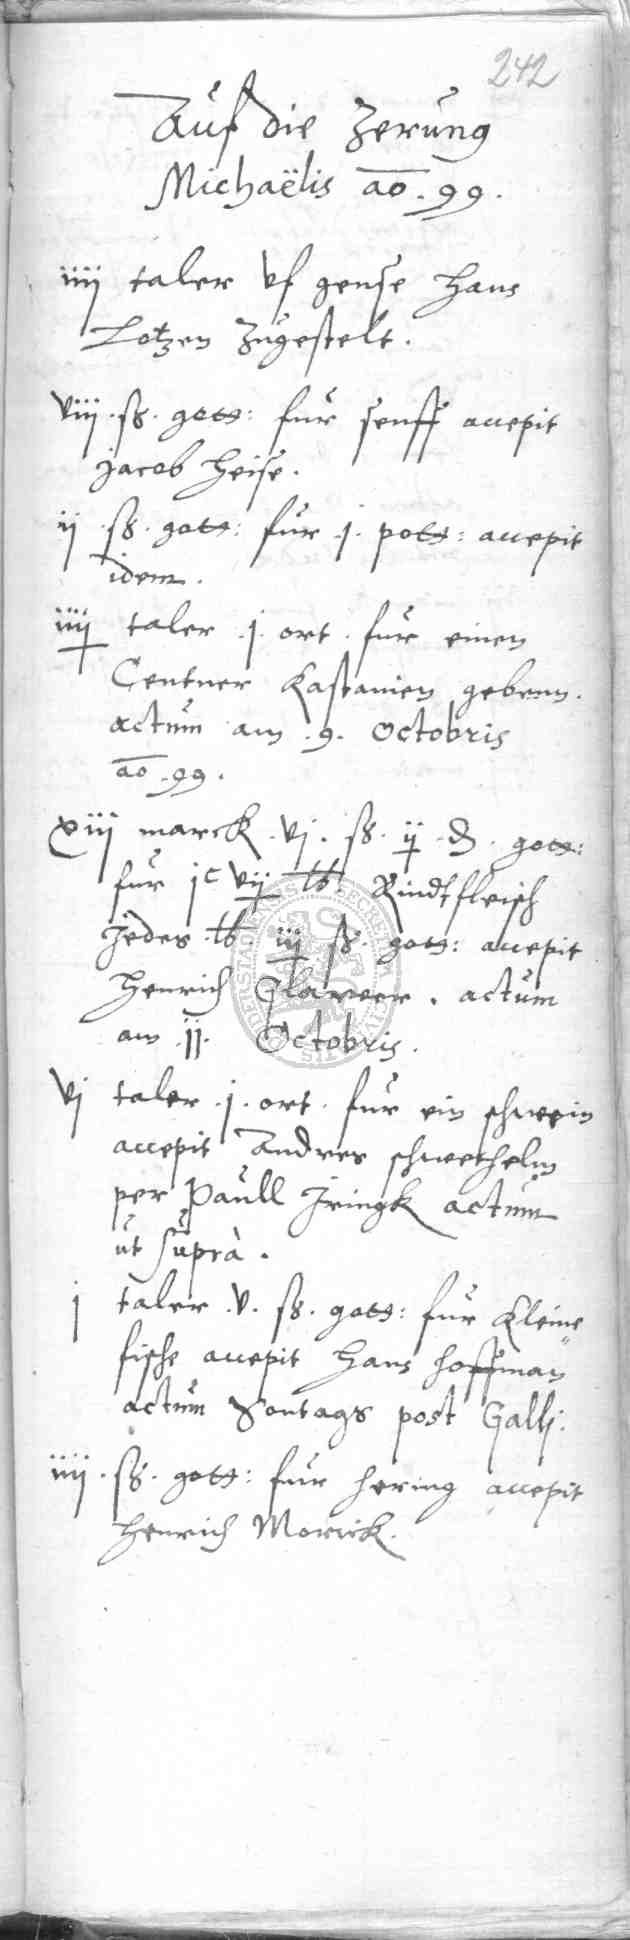 242
Auf die Zerung
Michaëlis ao. 99.
iiij taler vf gense Hans
Lotzen zugestelt.
viij. ß. gott: fur senff accepit
Jacob Heise.
ij ß. gott: fur .j. pott: accepit
idem.
iiij taler .j. ort. fur einen
Centner Kastanien gebenn.
actum am .9. Octobris
ao. 99.
xiij marck .vj. ß. ij ₰. gott:
fur jc vij lb. Rindtfleisch
Jedes lb iij ß. gott: accepit
Henrich . actum
am .jj. Octobris.
vj taler .j. ort. fur ein schwein
accepit Andres schwethelm
per Paull Iringk actum
ut suprà.
j taler .v. ß. gott: fur Kleine
fische accepit Hans Hoffman
actum Sontags post Gallj.
iiij. ß. gott: fur hering accepit
Henrich Morrick.